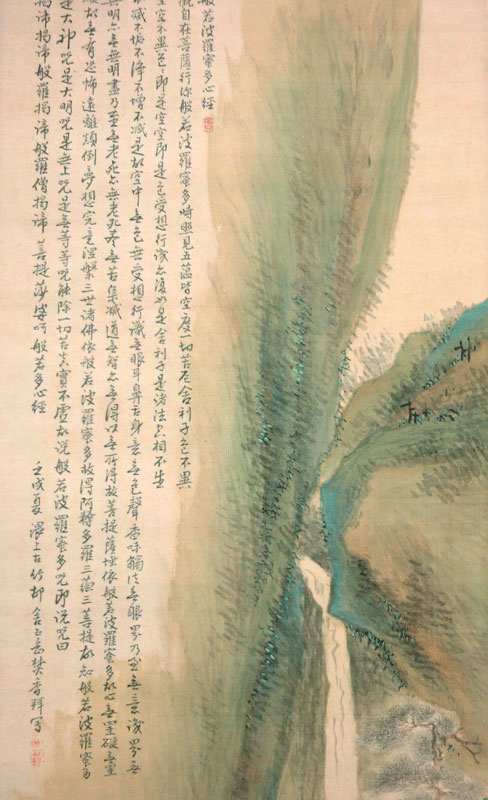 般若波羅蜜多心經
觀自在菩薩行深般若波羅蜜多時照見五蘊皆空度一切苦厄舍利子色不異
空空不異色即是空空即是色受想行識亦復如是舍利子是諸法空相不生
不滅不垢不淨不增不減是故空中無色無受想行識無眼耳鼻舌身意無色聲香味觸法無眼界乃至無意識界無
無明亦無無明盡乃至無老死亦無老死盡無苦集滅道無智亦無得以無所得故菩提薩埵依般若波羅蜜多故心無罣礙無罣
礙故無有恐怖遠離顛倒夢想究竟涅槃三世諸佛依般若波羅蜜多故得阿耨多羅三藐三菩提故知般若波羅蜜多
是大神咒是大明咒是無上咒是無等等咒能除一切苦真實不虛故說般若波羅蜜多咒即說咒曰
揭諦揭諦般羅揭諦般羅僧揭諦菩提莎婆呵般若多心經
壬戌夏滬上古竹邨舍